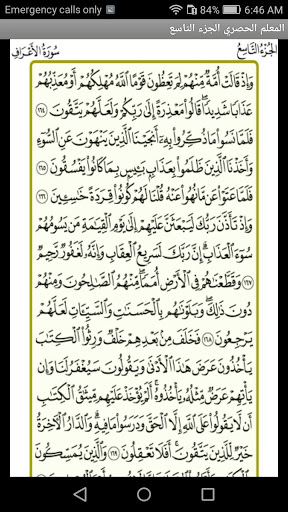 Emergency calls only
6:46 AM
المعلم الحصري الجزء التاسع
الجُزْءُ التَّاسِعُ
سُورَةُ الأَعْرَافِ
وَإِذْ قَالَتْ أُمَّةٌ مِّنْهُمْ لِمَ تَعِظُونَ قَوْمًا ٱللَّهُ مُهْلِكُهُمْ أَوْ مُعَذِّبُهُمْ
عَذَابًا شَدِيدًا قَالُوا۟ مَعْذِرَةً إِلَىٰ رَبِّكُمْ وَلَعَلَّهُمْ يَتَّقُونَ ١٦٤
فَلَمَّا نَسُوا۟ مَا ذُكِّرُوا۟ بِهِۦٓ أَنجَيْنَا ٱلَّذِينَ يَنْهَوْنَ عَنِ ٱلسُّوٓءِ
وَأَخَذْنَا ٱلَّذِينَ ظَلَمُوا۟ بِعَذَابٍۭ بَـِٔيسٍۭ بِمَا كَانُوا۟ يَفْسُقُونَ ١٦٥
فَلَمَّا عَتَوْا۟ عَن مَّا نُهُوا۟ عَنْهُ قُلْنَا لَهُمْ كُونُوا۟ قِرَدَةً خَـٰسِـِٔينَ ١٦٦
وَإِذْ تَأَذَّنَ رَبُّكَ لَيَبْعَثَنَّ عَلَيْهِمْ إِلَىٰ يَوْمِ ٱلْقِيَـٰمَةِ مَن يَسُومُهُمْ
سُوٓءَ ٱلْعَذَابِ إِنَّ رَبَّكَ لَسَرِيعُ ٱلْعِقَابِ وَإِنَّهُۥ لَغَفُورٌ رَّحِيمٌ
١٦٧ وَقَطَّعْنَـٰهُمْ فِى ٱلْأَرْضِ أُمَمًا مِّنْهُمُ ٱلصَّـٰلِحُونَ وَمِنْهُمْ
دُونَ ذَٰلِكَ وَبَلَوْنَـٰهُم بِٱلْحَسَنَـٰتِ وَٱلسَّيِّـَٔاتِ لَعَلَّهُمْ
يَرْجِعُونَ ١٦٨ فَخَلَفَ مِنۢ بَعْدِهِمْ خَلْفٌ وَرِثُوا۟ ٱلْكِتَـٰبَ
يَأْخُذُونَ عَرَضَ هَـٰذَا ٱلْأَدْنَىٰ وَيَقُولُونَ سَيُغْفَرُ لَنَا وَإِن
يَأْتِهِمْ عَرَضٌ مِّثْلُهُۥ يَأْخُذُوهُ أَلَمْ يُؤْخَذْ عَلَيْهِم مِّيثَـٰقُ ٱلْكِتَـٰبِ
أَن لَّا يَقُولُوا۟ عَلَى ٱللَّهِ إِلَّا ٱلْحَقَّ وَدَرَسُوا۟ مَا فِيهِ وَٱلدَّارُ ٱلْـَٔاخِرَةُ
خَيْرٌ لِّلَّذِينَ يَتَّقُونَ أَفَلَا تَعْقِلُونَ ١٦٩ وَٱلَّذِينَ يُمَسِّكُونَ